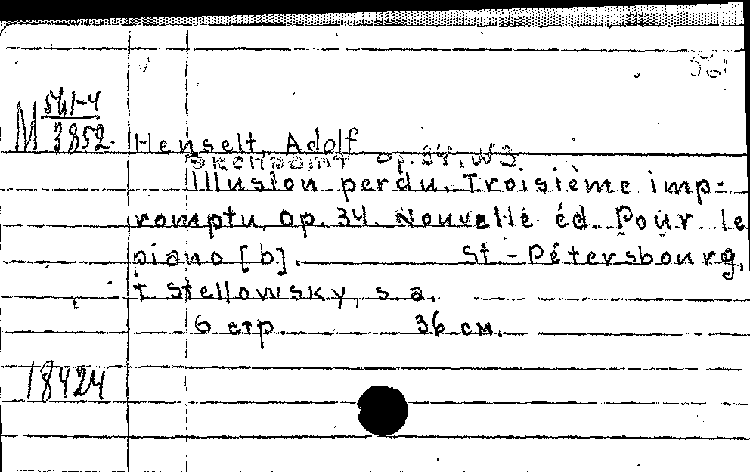 561
M 561-4
3852
Henselt, Adolf
Экспромт op. 34, №3
Illusion perdu. Troisième imp-
romptu, op. 34. Nouvelle éd. Pour le
piano [b]. St-Pétersbourg,
T. Stellowsky, s. a.
6 стр. 36 см.
18424